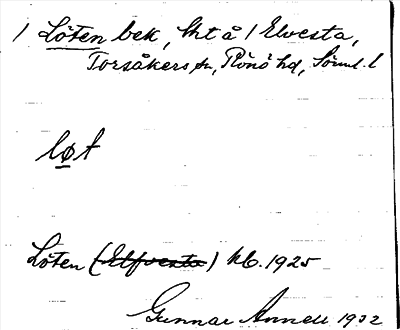 / Löten bek, lht å / Elvesta,
Torsåkers sn, Rönö hd, Söml. l
løt
Löten (Elfvesta) kb. 1925
Gunnar Annell 1932